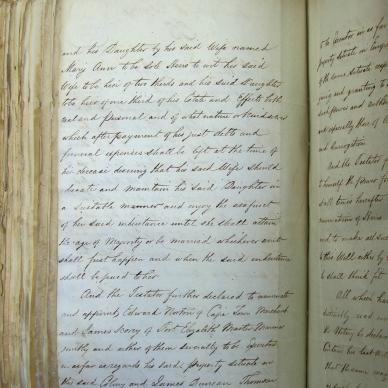 and his Daughter by his said Wife named
Mary Ann to be sole Heirs to wit his said
Wife to be heir of two thirds and his said Daughter
to be heir of one third of his Estate and Effects both
real and personal and of what nature or kind soever
which after payment of his just debts and
funeral expenses shall be left at the time of
his decease desiring that his said Wife should
educate and maintain his said Daughter in
a suitable manner and enjoy the usufruct
of her said inheritance until she shall attain
the age of Majority or be married whichever event
shall first happen and when the said inheritance
shall be paid to her
And the Testator further declared to nominate
and appoint Edward Norton of Cape Town Merchant
and James Berry of Port Elizabeth Master Mariner
jointly and either of them severally to be Executor
in as far as regards his said property situate in
this said Colony and James Duncan Thomson
to be Executor in as far
property situate in
of the same
going and granting to
such powers and
and especially that of
and Surrogation
And the Testator
to himself the power
shall
nomination of Heirs
and to make all such
to this Will either by
he shall think fit
All which